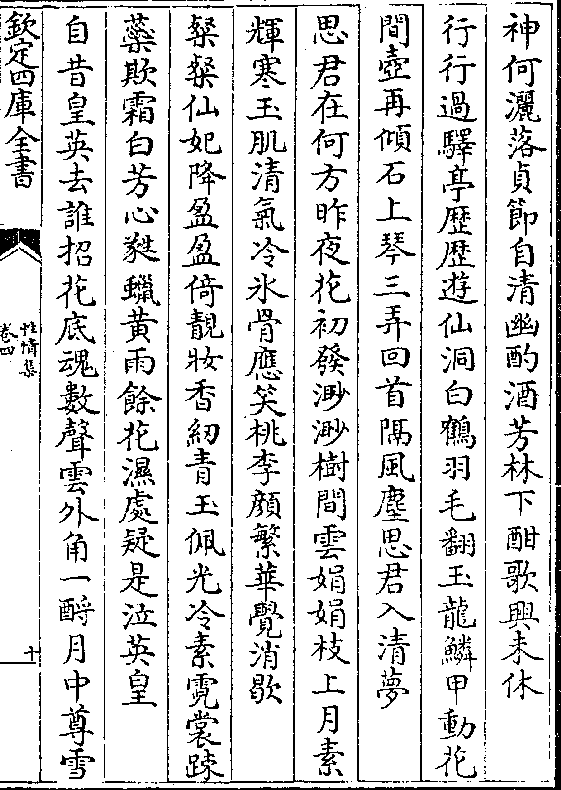 神何灑落貞節自清幽酌酒芳林下酣歌興未休
行行過驛亭歴歴遊仙洞白鶴羽毛翻玉龍鱗甲動花
間壺再傾石上琴三弄回首隔風塵思君入清夢
思君在何方昨夜花初發渺渺樹間雲娟娟枝上月素
輝寒玉肌清氣冷氷骨應笑桃李顔繁華覺消歇
粲粲仙妃降盈盈倚靚妝香紉青玉佩光冷素霓裳踈
蘂欺霜白芳心㲯蠟黄雨餘花濕處疑是泣英皇
自昔皇英去誰招花底魂數聲雲外角一酹月中尊雪
欽定四庫全書
性情集
卷四
十